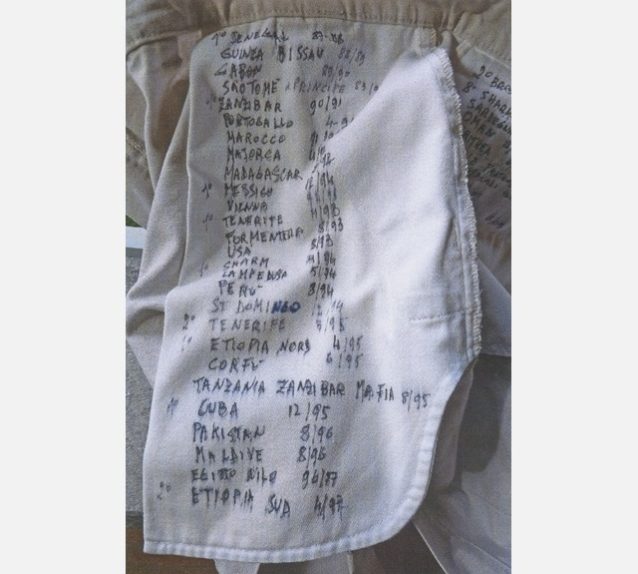 1° SENEGAL 87-88
GUINEA BISSAU 88/89
GABON 89/90
SAOTOME E PRINCIPE 89/9
ZANZIBAR 90/91
PORTOGALLO 4-91
MAROCCO
MAJORCA
MADAGASCAR
1° MESSICO
VIENNA
1° TENERIFE
FORMENTERA 8/93
USA 8/93
CHARM /94
LAMPEDUSA 5/94
PERÙ 8/94
ST DOMINGO
2° TENERIFE /95
1° ETIOPIA NORD 4/95
CORFÙ 6/95
TANZANIA ZANZIBAR MAFIA 8/95
CUBA 12/95
PAKISTAN 8/96
MALDIVE 8/96
EGITTO NILO 96/97
2° ETIOPIA SUD 4/97
2°
8° SHARM
SARDEGNA